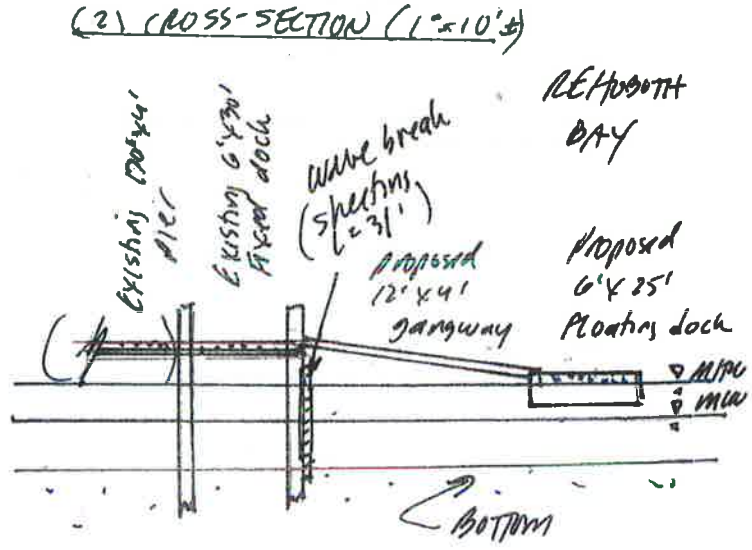 (2) CROSS-SECTION (1"=10'±)
REHOBOTH
BAY
Existing 4'
Pier
Existing 6'x30'
Fixed dock
wave break
(sheeting
= 31')
proposed
12'x4'
gangway
Proposed
6'x25'
Floating dock
MLW
BOTTOM